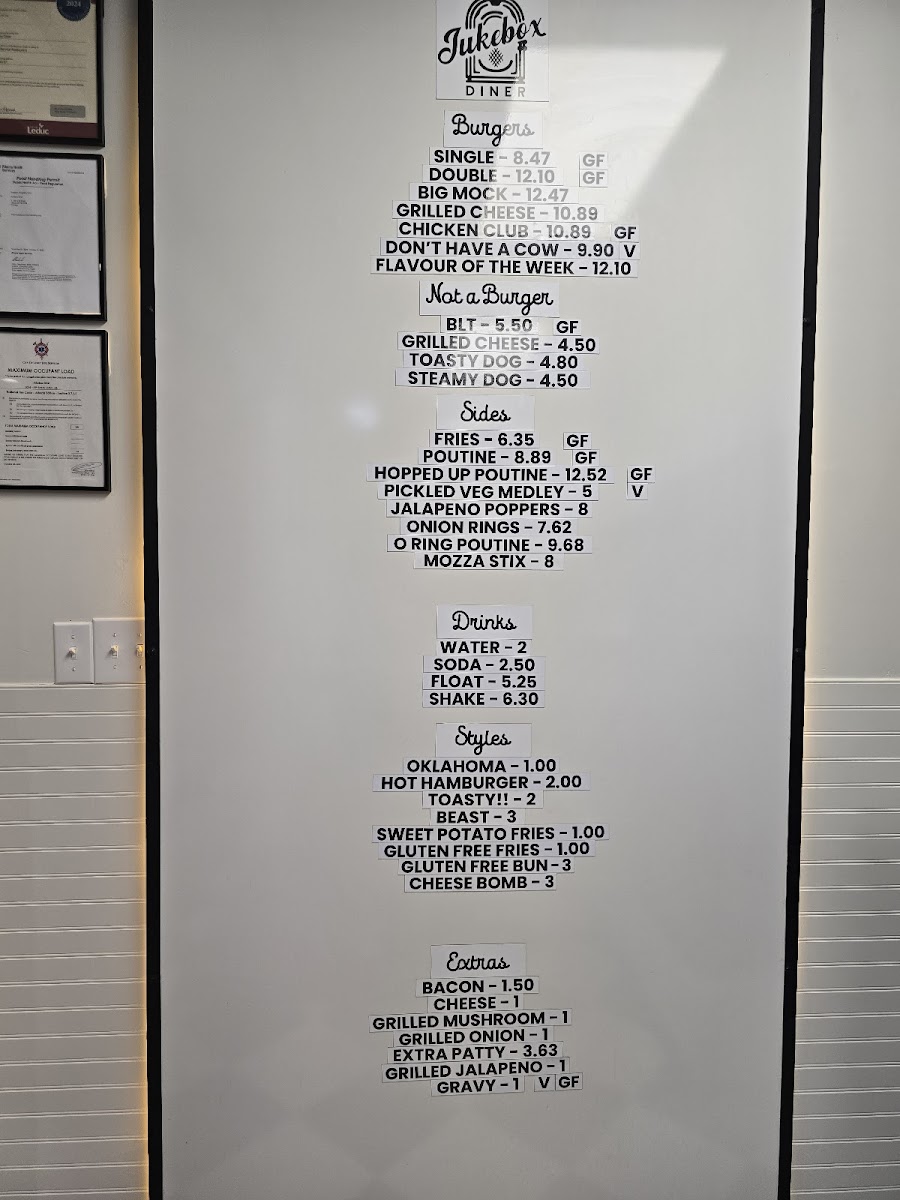 2024
Leduc
Food Handling Permit
MAXIMUM OCCUPANT LOAD
Jukebox
DINER
Burgers
SINGLE - 8.47 GF
DOUBLE - 12.10 GF
BIG MOCK - 12.47
GRILLED CHEESE - 10.89
CHICKEN CLUB - 10.89 GF
DON'T HAVE A COW - 9.90 V
FLAVOUR OF THE WEEK - 12.10
Not a Burger
BLT - 5.50 GF
GRILLED CHEESE - 4.50
TOASTY DOG - 4.80
STEAMY DOG - 4.50
Sides
FRIES - 6.35 GF
POUTINE - 8.89 GF
HOPPED UP POUTINE - 12.52 GF
PICKLED VEG MEDLEY - 5 V
JALAPENO POPPERS - 8
ONION RINGS - 7.62
O RING POUTINE - 9.68
MOZZA STIX - 8
Drinks
WATER - 2
SODA - 2.50
FLOAT - 5.25
SHAKE - 6.30
Styles
OKLAHOMA - 1.00
HOT HAMBURGER - 2.00
TOASTY!! - 2
BEAST - 3
SWEET POTATO FRIES - 1.00
GLUTEN FREE FRIES - 1.00
GLUTEN FREE BUN - 3
CHEESE BOMB - 3
Extras
BACON - 1.50
CHEESE - 1
GRILLED MUSHROOM - 1
GRILLED ONION - 1
EXTRA PATTY - 3.63
GRILLED JALAPENO - 1
GRAVY - 1 V GF